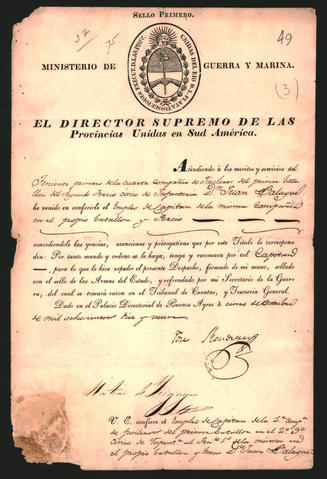 SELLO PRIMERO.
37 75
49
MINISTERIO DE GUERRA Y MARINA.
(3)
EL DIRECTOR SUPREMO DE LAS
Provincias Unidas en Sud América.
Atendiendo á los meritos y servicios del
Teniente primero de la cuarta Compañia de Fusileros del primer Batallon
del Segundo Tercio civico de Infanteria Dn. Juan
ha venido en conferirle el Empleo de Capitan de la misma Compañia
en el propio Batallon y Tercio
concediendole las gracias, esenciones y prerogativas que por este Título le corresponden.
Por tanto mando y ordeno se le haya, tenga y reconozca por tal Capitan
, para lo que le hice expedir el presente Despacho, firmado de mi mano, sellado
con el sello de las Armas del Estado, y refrendado por mi Secretario de la Guerra,
del cual se tomará razon en el Tribunal de Cuentas, y Tesorería General.
Dado en el Palacio Directorial de Buenos Ayres á cinco de
de mil ochocientos diez y nueve
José Rondeau
Matias de Irigoyen
V. E. confiere el Empleo de Capitan de la 4a. Comp.
de fusileros del primer Batallon en el 2o.
civico de la misma en
el propio Batallon y Tercio Dn. Juan